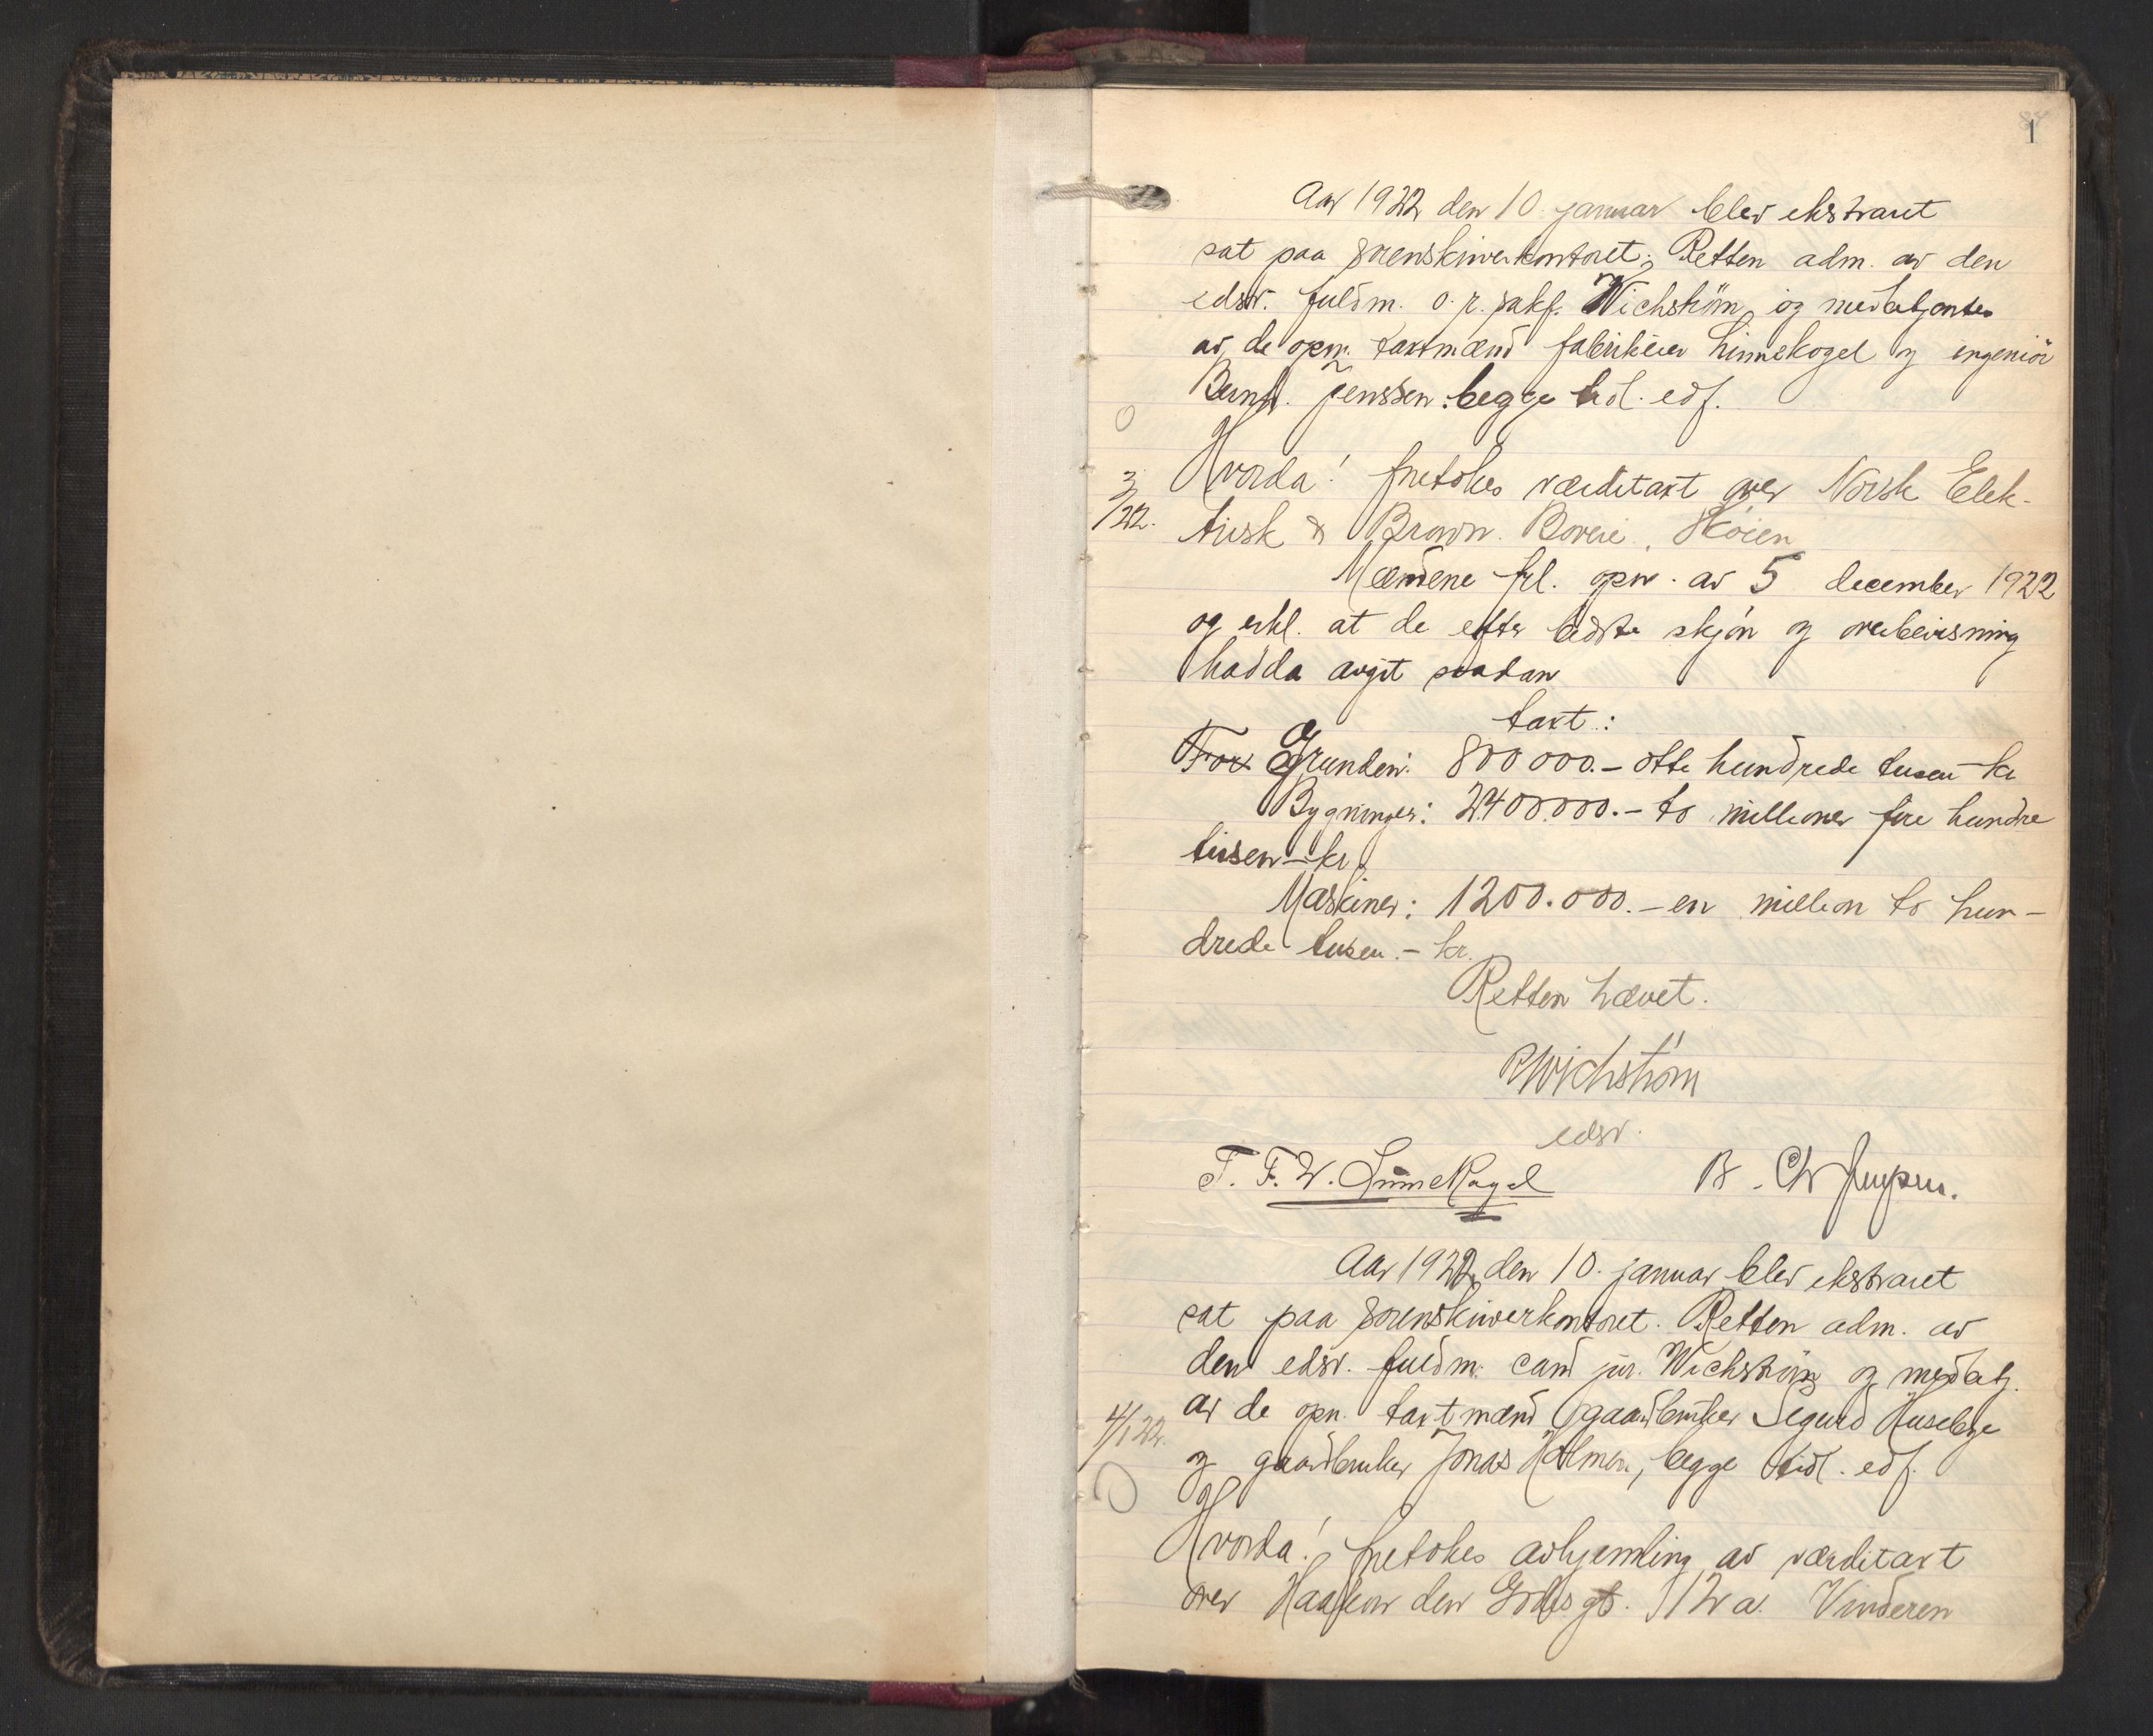 1
Aar 1922 den 10. januar blev ekstraret
sat paa sorenskriverkontoret. Retten adm. av den
edsv. fuldm. o.r.sakf. Wichstrøm og medbetjentes
av de opn. takstmænd fabrikeier Linnekogel og ingeniør
Bernh. Jenssen. begge tidl. edf.
3/1 22.
Hvorda! foretokes værditaxt over Norsk Elek-
trisk & Brown Boveri, Skøien
Mændene frl. opn. av 5 december 1922
og erkl. at de efter bedste skjøn og overbevisning
hadda avgit saadan
taxt:
For Grunden: 800000.- otte hundrede tusen - kr
Bygninger: 2400.000.- to millioner fire hundre
tusen - kr.
Maskiner: 1200.000.- en million to hun-
drede tusen. - kr.
Retten hævet.
Wichstrøm
edsv.
T. F. W. Linnekogel B. Chr Jenssen.
Aar 1922 den 10. januar blev ekstraret
sat paa sorenskriverkontoret. Retten adm. av
den edsv. fuldm. cand jur. Wichstrøm og medbetj.
av de opn. taxtmænd gaardbruker Sigurd Huseby
4/1 22.
og gaardbruker Jonas Holmen, begge tidl. edf.
Hvorda! foretokes avhjemling av værditaxt
over Haakon den Godes gt. 12 a. Vinderen